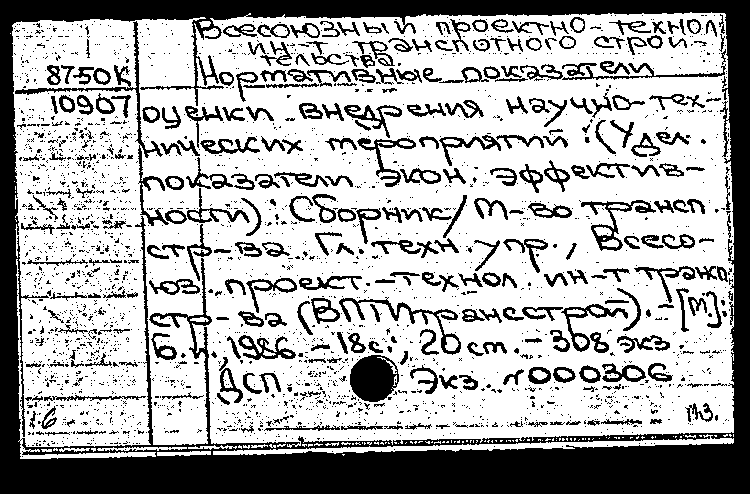 Всесоюзный проектно-технол
ин-т транспотного строи-
тельства.
87-50К Нормативные показатели
10907 оценки внедрения научно-тех-
нических мероприятий: (Удел.
показатели экон. эффектив-
ности): Сборник/М-во трансп.
стр-ва. Гл. техн. упр., Всесо-
юз. проект.-технол. ин-т трансп
стр-ва (ВПТИтрансстрой). - [М.]:
Б.и., 1986. - 18с.; 20 см. - 308 экз.
ДСП. Экз. №000306.
:6 М.З.